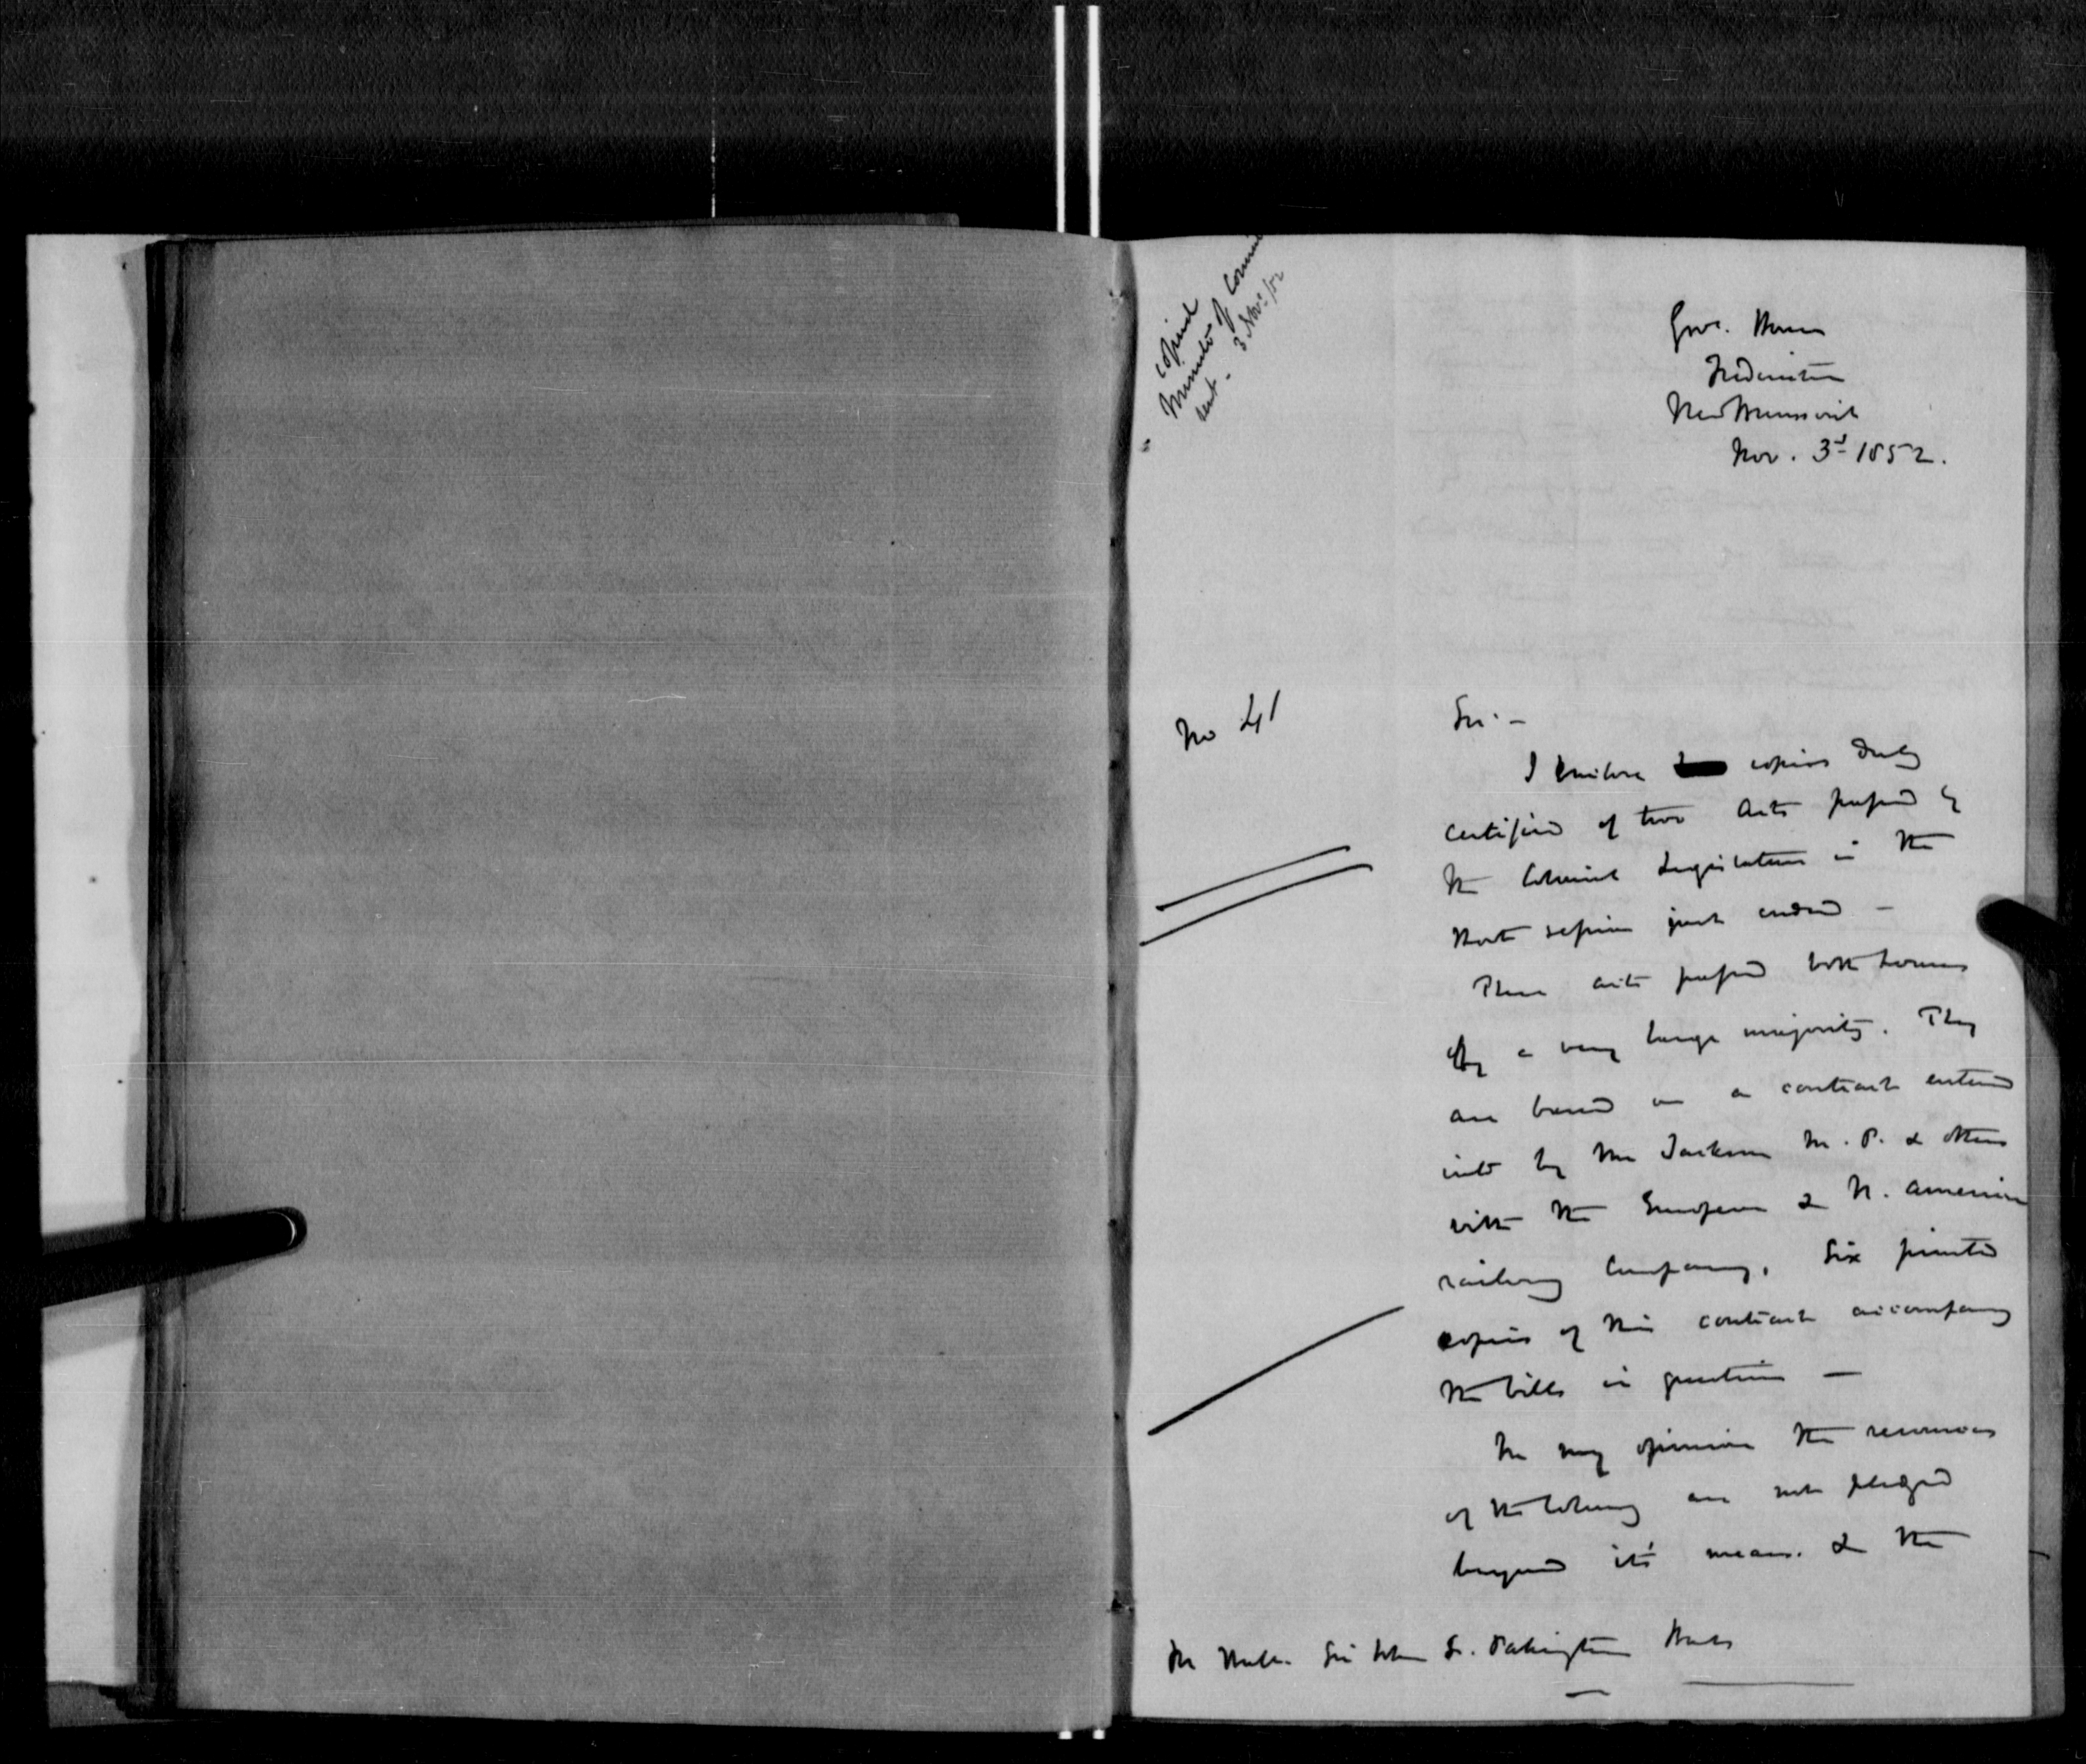 copied
Minute of Council
sent - 3 Nov./52
Gov. House
Fredericton
New Brunswick
Nov. 3d 1852.
No 41
Sir. -
I enclose copies duly
certified of two Acts passed by
the Colonial Legislature in the
short session just ended -
These acts passed both houses
by a very large majority. They
are based on a contract entered
into by Mr Jackson M. P. & others
with the European & N. American
railway Company. Six printed
copies of this contract accompany
the bills in question -
In my opinion the resources
of the Colony are not pledged
beyond it's means. & the
Sir John S. Pakington Bart